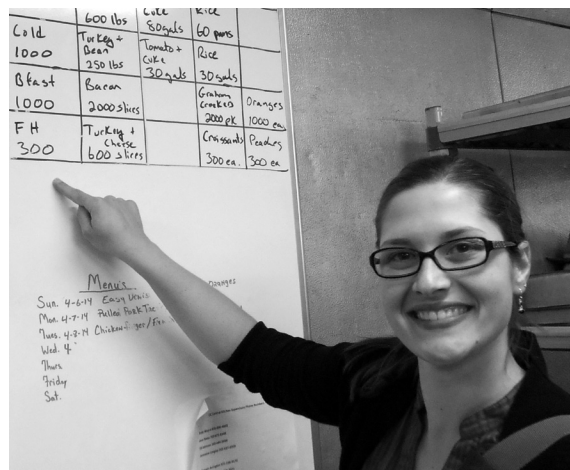 600 lbs
Cuke
80 gals
Rice
60 pans
Cold
1000
Turkey +
Bean
250 lbs
Tomato +
Cuke
30 gals
Rice
30 gals
Bfast
1000
Bacon
2000 slices
Graham
Cracked
2000 pk
Oranges
1000 ea
FH
300
Turkey +
Cheese
600 slices
Croissants
300 ea.
Peaches
300 ea
Menu's
Oranges
Sun. 4-6-14 Easy
Mon. 4-7-14 Pulled Pork
Tues. 4-8-14 Chicken
Wed. 4
Thurs
Friday
Sat.